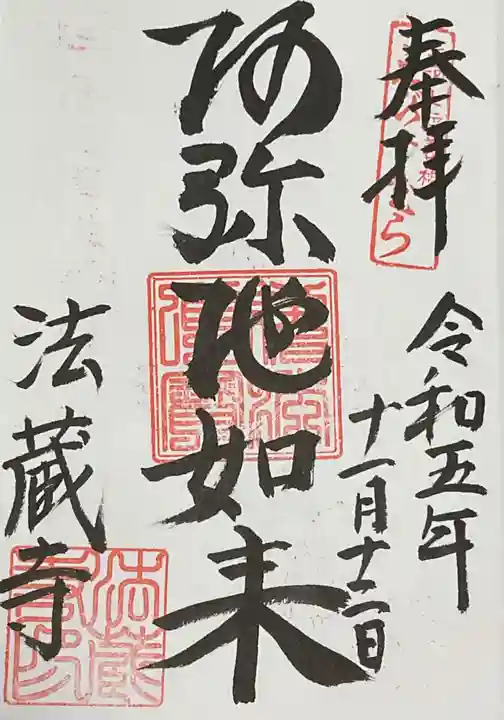 奉拝
令和五年
十一月十二日
阿弥陀如来
法蔵寺
法蔵寺印